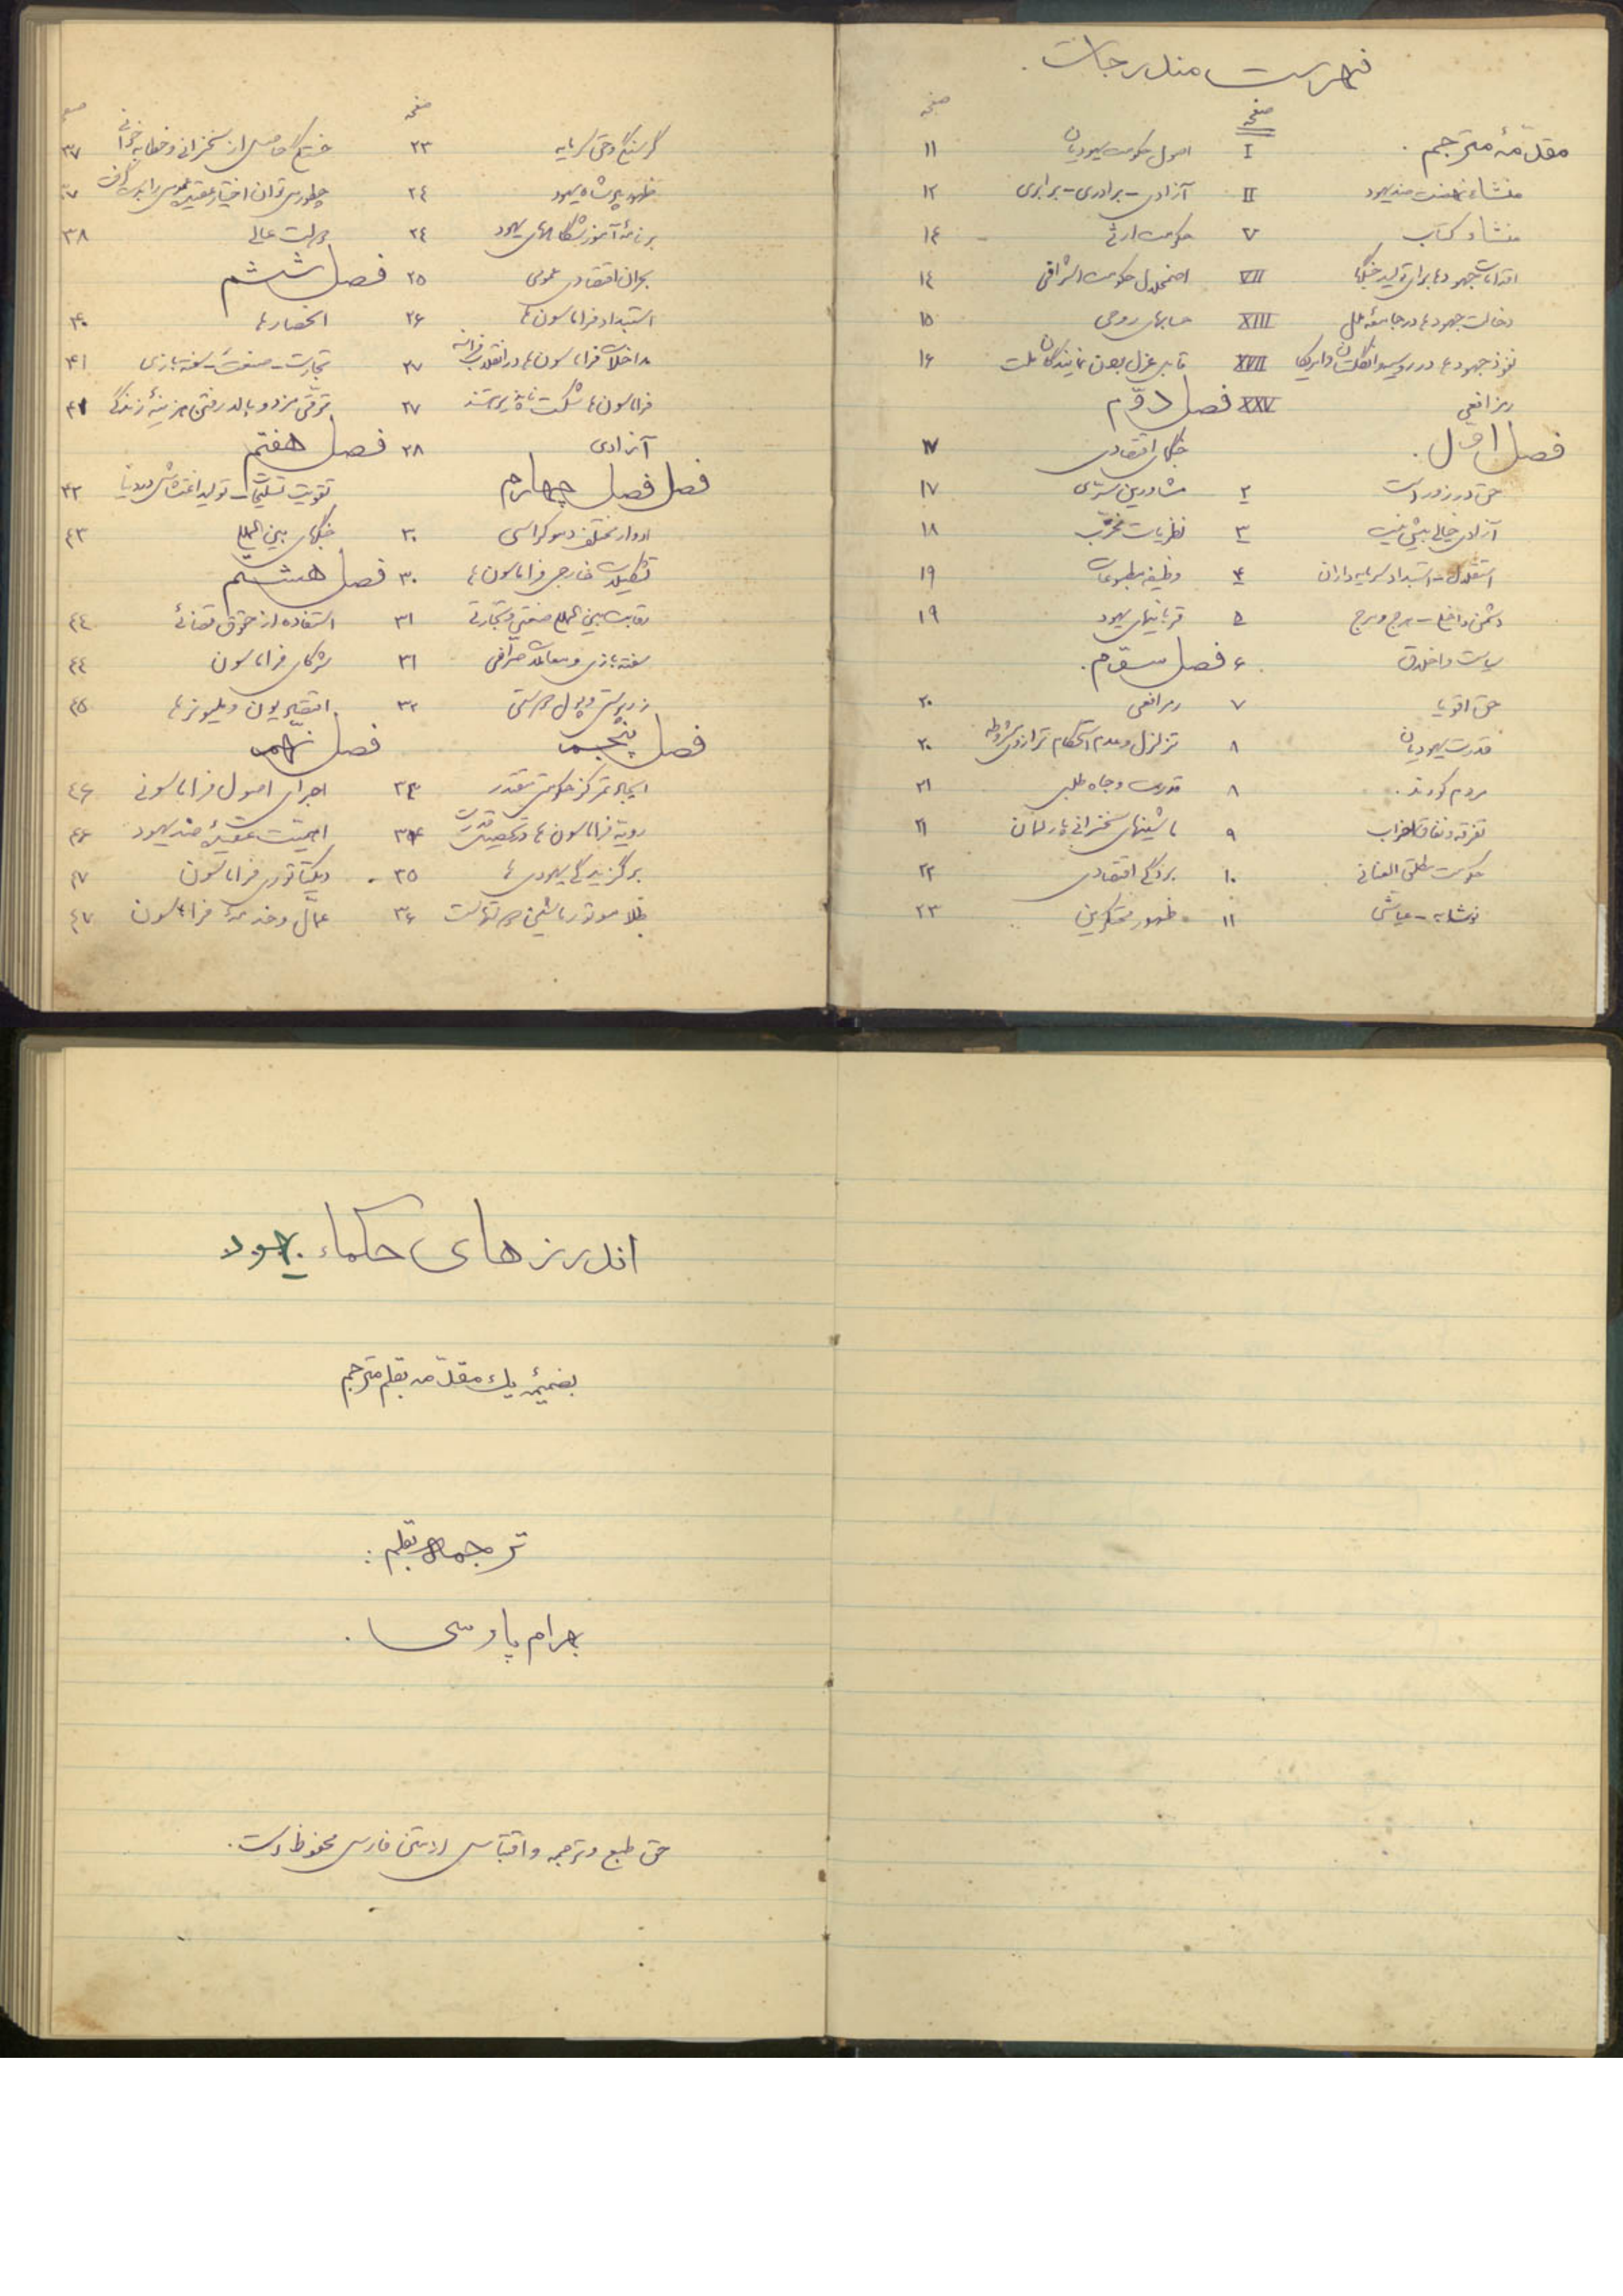 فهرست مندرجات.
صفحه
صفحه
مقدّمهٔ مترجم.
منشاء نهضت ضد یهود II
منشاء کتاب V
اقدامات جهودها برای تولید جنگها VII
دخالت جهودها در جامعهٔ ملل XIII
نفوذ جهودها در روسیه و انگلستان و امریکا XVII
رمز افعی XXV
فصل اوّل.
حق در زور است ۲
آزادی خیالی بیش نیست ۳
استقلال - استبداد سرمایه‌داران ۴
دشمن داخلی - هرج و مرج ۵
سیاست و اخلاق ۶
حق اقویا ۷
قدرت یهودیان ۸
مردم کورند. ۸
تفرقه و نفاق احزاب ۹
حکومت مطلق العنانی ۱۰
نوشابه - عیاشی ۱۱
اصول حکومت یهودیان ۱۱
آزادی - برادری - برابری ۱۲
حکومت ارثی ۱۴
اضمحلال حکومت اشرافی ۱٤
حسابهای روحی ۱۵
قابل عزل بودن نمایندگان ملت ۱۶
فصل دوّم
جنگهای اقتصادی ۱۷
مشاورین سرّی ۱۷
نظریات مخرّب ۱۸
وظیفه مطبوعات ۱۹
قربانیهای یهود ۱۹
فصل سوّم.
رمز افعی ۲۰
تزلزل و عدم استحکام ترازوی مشروطه ۲۰
قدرت و جاه طلبی ۲۱
ماشینهای سخنرانی پارلمان ۲۱
بردگی اقتصادی ۲۲
ظهور محتکرین ۲۳
صفحه
گرسنگی و حق سرمایه ۲۳
ظهور پادشاه یهود ۲٤
برنامهٔ آموزشگاههای یهود ۲٤
بحران اقتصادی عمومی ۲۵
استبداد فراماسون‌ها ۲۶
مداخلات فراماسون‌ها در انقلاب فرانسه ۲۷
فراماسون‌ها شکست ناپذیر هستند ۲۷
آزادی ۲۸
فصل فصل چهارم
ادوار مختلف دموکراسی ۳۰
تشکیلات خارجی فراماسون‌ها ۳۰
رقابت بین المللی صنعتی و تجارتی ۳۱
سفته بازی و معاملات صرافی ۳۱
زرپرستی و پول پرستی ۳۲
فصل پنجم
ایجاد تمرکز حکومتی مقتدر ۳۳
رویه فراماسون‌ها در تحصیل قدرت ۳۴
برگزیدگی یهودی‌ها ۳۵
طلا موتور ماشین هر دولت است ۳۶
خستگی حاصل از سخنرانی و خطابه خوانی ۳۷
چطور میتوان اختیار عقیده عمومی را بدست گرفت ۳۷
دولت عالی ۳۸
فصل ششم
انحصارها ۴۰
تجارت - صنعت - سفته بازی ۴۱
ترقی مزد و بالا رفتن هزینهٔ زندگی ۴۱
فصل هفتم
تقویت تسلیحات - تولید اغتشاش در دنیا ۴۳
جنگهای بین المللی ٤۳
فصل هشتم
استفاده از حقوق قضائی ٤٤
شرکای فراماسون ٤٤
اقتصادیون و میلیونرها ٤۵
فصل نهم
اجرای اصول فراماسونی ٤۶
اهمیت عقیدهٔ ضد یهود ٤۶
دیکتاتوری فراماسون ٤۷
عمّال و خدمهٔ فراماسون ٤۷
اندرزهای حکماء یهود
بضمیمه یک مقدّمه بقلم مترجم
ترجمه بقلم:
بهرام پارسی.
حق طبع و ترجمه و اقتباس از متن فارسی محفوظ است.